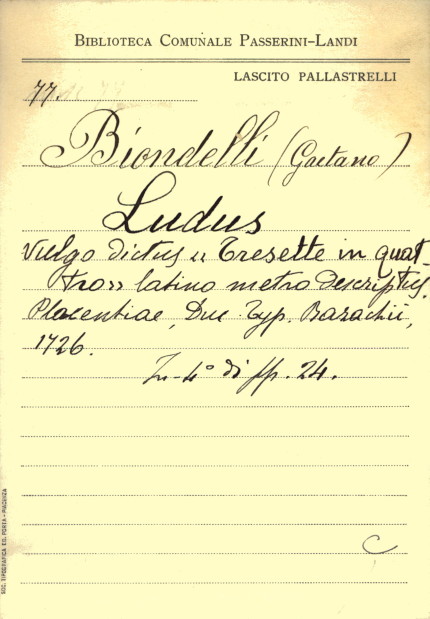 BIBLIOTECA COMUNALE PASSERINI-LANDI
LASCITO PALLASTRELLI
77.
Biondelli (Gaetano)
Ludus
vulgo dictus „ Tresette in quat-
tro„ latino metro descriptus.
Placentiae, Duc Typ. Bazachii,
1726.
In-4° di pp. 24.
C
SOC. TIPOGRAFICA ED. PORTA - PIACENZA